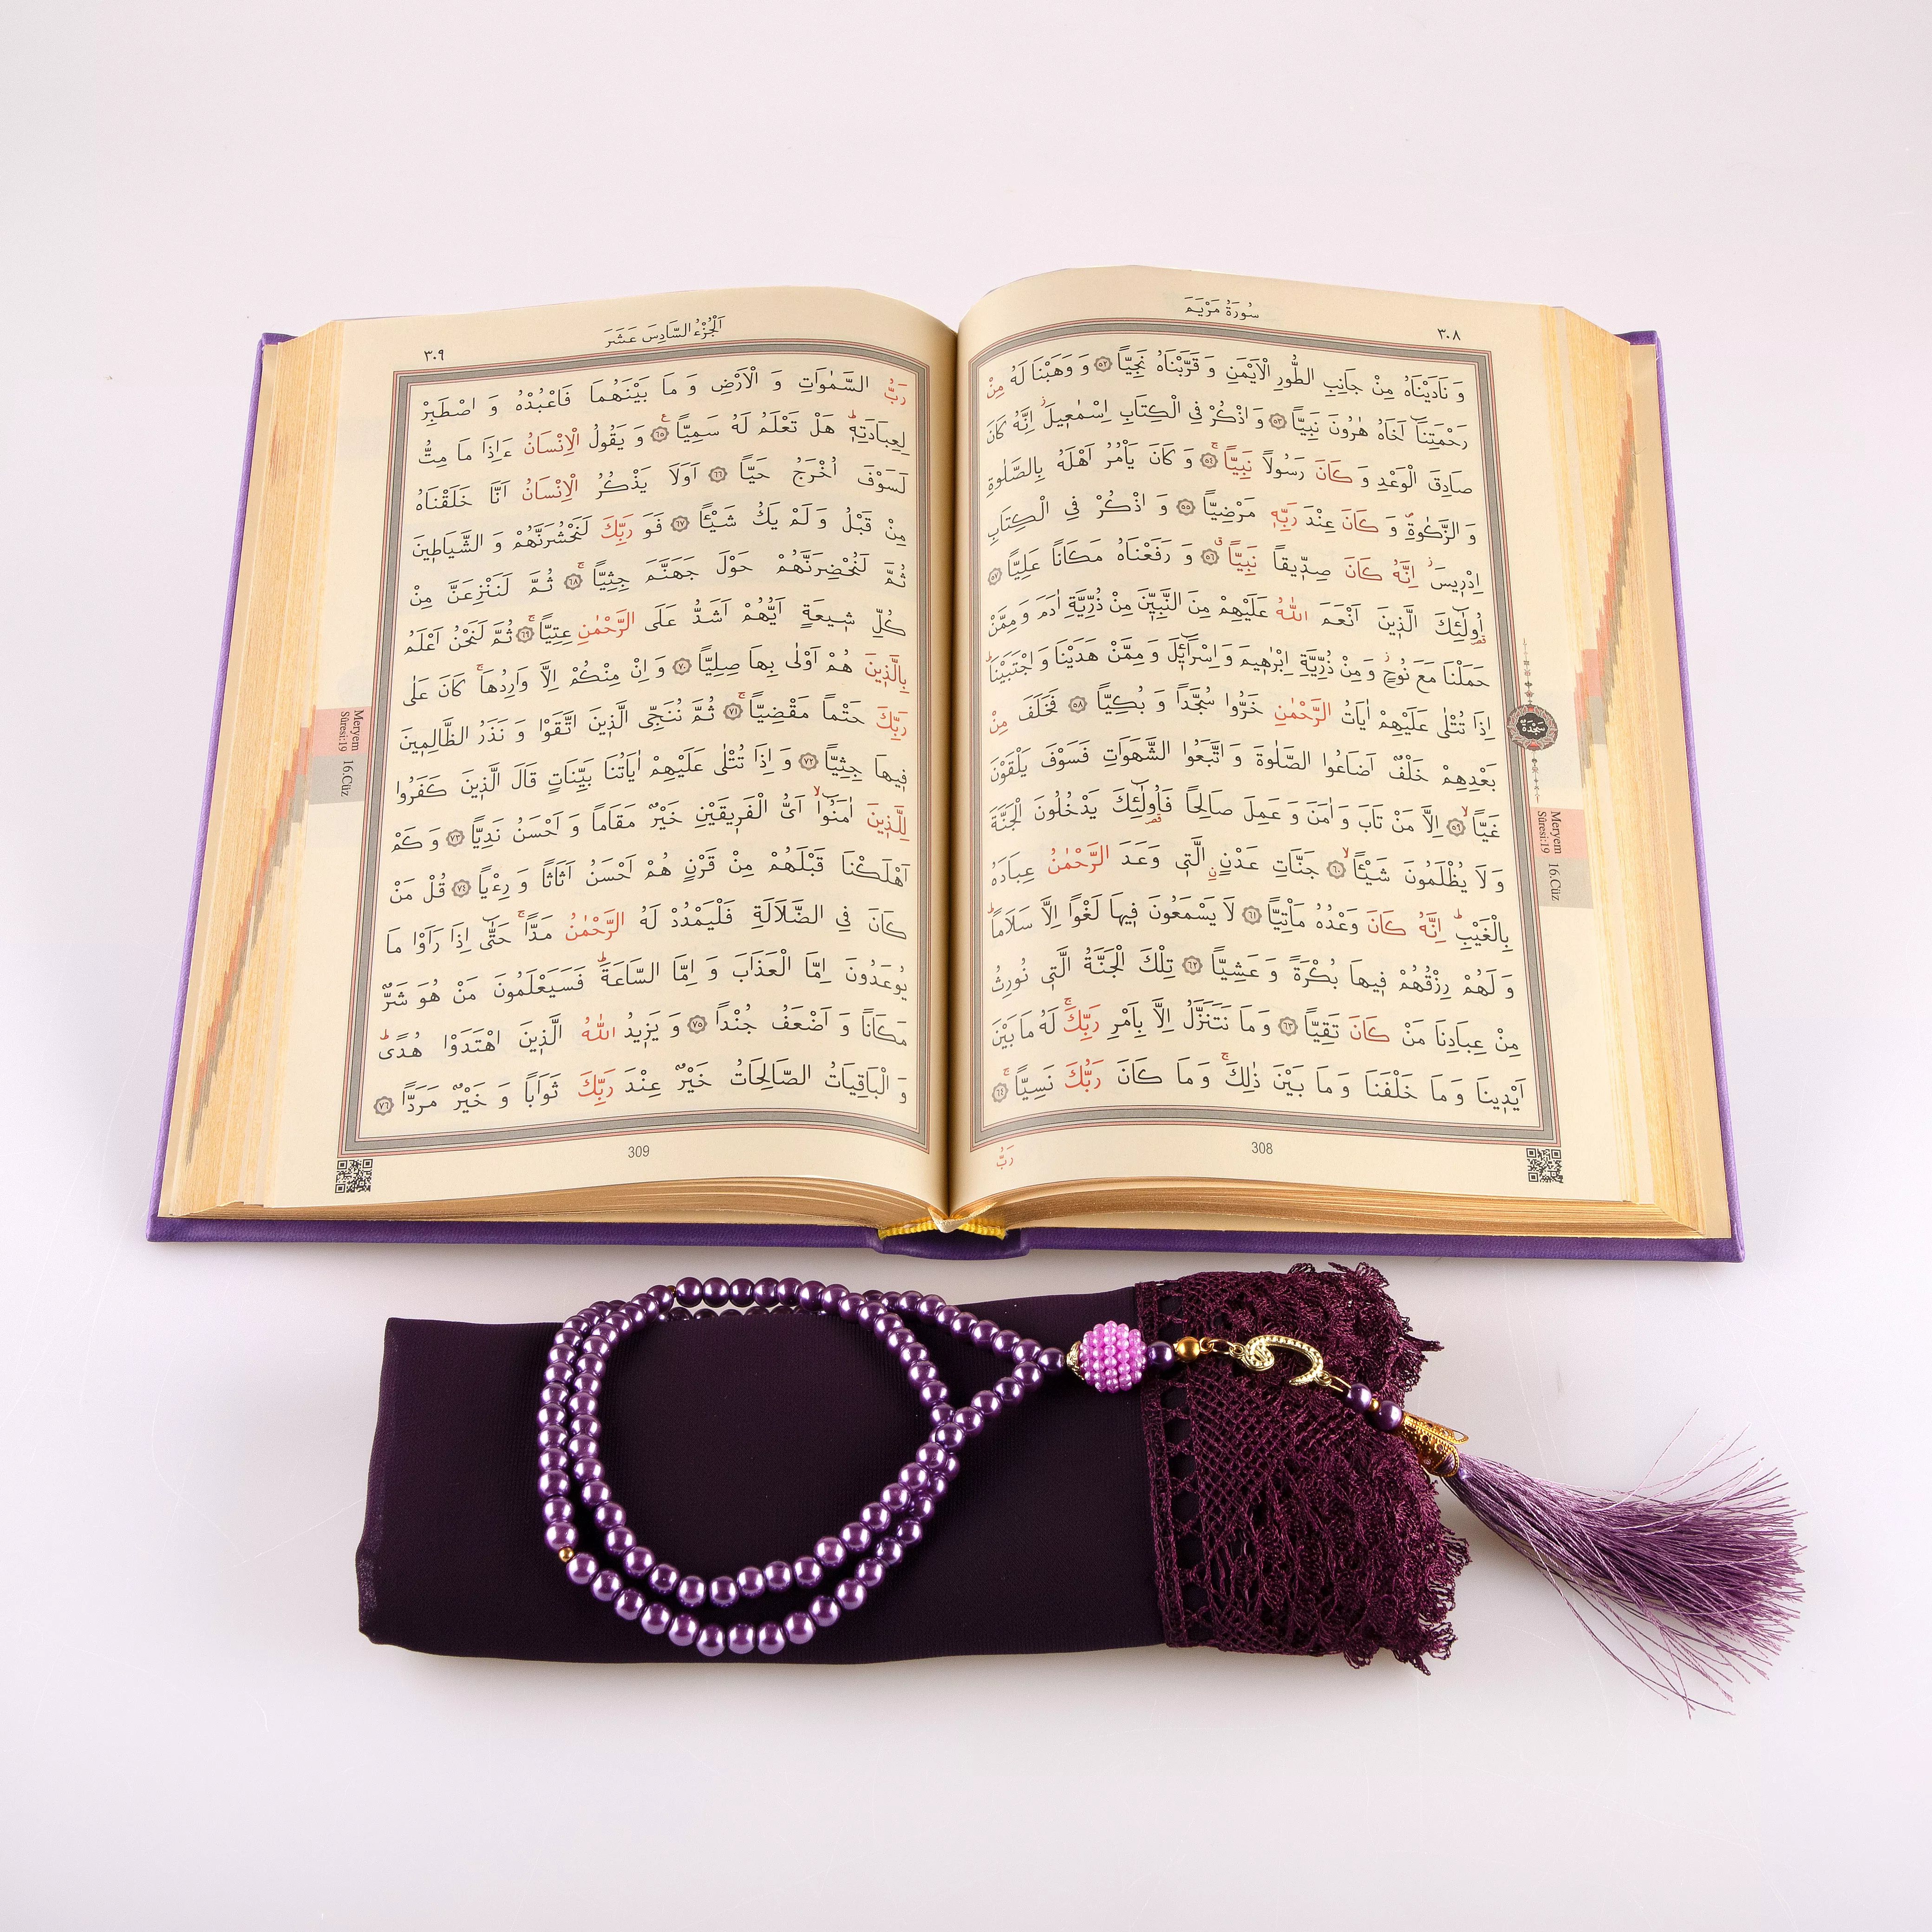 سُورَةُ مَرْيَمَ
٣٠٨
وَ نَادَيْنَاهُ مِنْ جَانِبِ الطُّورِ الْاَيْمَنِ وَ قَرَّبْنَاهُ نَجِيًّا ﴿٥٢﴾ وَ وَهَبْنَا لَهُ مِنْ
رَحْمَتِنَٓا اَخَاهُ هٰرُونَ نَبِيًّا ﴿٥٣﴾ وَ اذْكُرْ فِي الْكِتَابِ اِسْمٰعٖيلَؗ اِنَّهُ كَانَ
صَادِقَ الْوَعْدِ وَ كَانَ رَسُولًا نَبِيًّاۚ ﴿٥٤﴾ وَ كَانَ يَأْمُرُ اَهْلَهُ بِالصَّلٰوةِ
وَ الزَّكٰوةِࣕ وَ كَانَ عِنْدَ رَبِّهٖ مَرْضِيًّا ﴿٥٥﴾ وَ اذْكُرْ فِي الْكِتَابِ
اِدْرٖيسَؗ اِنَّهُ كَانَ صِدّٖيقًا نَبِيًّاࣗ ﴿٥٦﴾ وَ رَفَعْنَاهُ مَكَانًا عَلِيًّا ﴿٥٧﴾
اُولٰٓئِكَ الَّذٖينَ اَنْعَمَ اللّٰهُ عَلَيْهِمْ مِنَ النَّبِيّٖنَ مِنْ ذُرِّيَّةِ اٰدَمَ وَ مِمَّنْ
حَمَلْنَا مَعَ نُوحٍؗ وَ مِنْ ذُرِّيَّةِ اِبْرٰهٖيمَ وَ اِسْرَٓائٖلَ وَ مِمَّنْ هَدَيْنَا وَ اجْتَبَيْنَاؕ
اِذَا تُتْلٰى عَلَيْهِمْ اٰيَاتُ الرَّحْمٰنِ خَرُّوا سُجَّدًا وَ بُكِيًّا ﴿٥٨﴾ فَخَلَفَ مِنْ
بَعْدِهِمْ خَلْفٌ اَضَاعُوا الصَّلٰوةَ وَ اتَّبَعُوا الشَّهَوَاتِ فَسَوْفَ يَلْقَوْنَ
غَيًّاۙ ﴿٥٩﴾ اِلَّا مَنْ تَابَ وَ اٰمَنَ وَ عَمِلَ صَالِحًا فَاُولٰٓئِكَ يَدْخُلُونَ الْجَنَّةَ
وَ لَا يُظْلَمُونَ شَيْـًٔاۙ ﴿٦٠﴾ جَنَّاتِ عَدْنٍ الَّتٖى وَعَدَ الرَّحْمٰنُ عِبَادَهُ
بِالْغَيْبِؕ اِنَّهُ كَانَ وَعْدُهُ مَأْتِيًّا ﴿٦١﴾ لَا يَسْمَعُونَ فٖيهَا لَغْوًا اِلَّا سَلَامًاؕ
وَ لَهُمْ رِزْقُهُمْ فٖيهَا بُكْرَةً وَ عَشِيًّا ﴿٦٢﴾ تِلْكَ الْجَنَّةُ الَّتٖى نُورِثُ
مِنْ عِبَادِنَا مَنْ كَانَ تَقِيًّا ﴿٦٣﴾ وَ مَا نَتَنَزَّلُ اِلَّا بِاَمْرِ رَبِّكَۚ لَهُ مَا بَيْنَ
اَيْدٖينَا وَ مَا خَلْفَنَا وَ مَا بَيْنَ ذٰلِكَۚ وَ مَا كَانَ رَبُّكَ نَسِيًّاۚ ﴿٦٤﴾
سَجْدَةٌ
Meryem
Sûresi:19
16.Cüz
308
رَبُّ
اَلْجُزْءُ السَّادِسَ عَشَرَ
٣٠٩
رَبُّ السَّمٰوَاتِ وَ الْاَرْضِ وَ مَا بَيْنَهُمَا فَاعْبُدْهُ وَ اصْطَبِرْ
لِعِبَادَتِهٖؕ هَلْ تَعْلَمُ لَهُ سَمِيًّاࣖ ﴿٦٥﴾ وَ يَقُولُ الْاِنْسَانُ ءَاِذَا مَا مِتُّ
لَسَوْفَ اُخْرَجُ حَيًّا ﴿٦٦﴾ اَوَلَا يَذْكُرُ الْاِنْسَانُ اَنَّا خَلَقْنَاهُ
مِنْ قَبْلُ وَ لَمْ يَكُ شَيْـًٔا ﴿٦٧﴾ فَوَ رَبِّكَ لَنَحْشُرَنَّهُمْ وَ الشَّيَاطٖينَ
ثُمَّ لَنُحْضِرَنَّهُمْ حَوْلَ جَهَنَّمَ جِثِيًّاۚ ﴿٦٨﴾ ثُمَّ لَنَنْزِعَنَّ مِنْ
كُلِّ شٖيعَةٍ اَيُّهُمْ اَشَدُّ عَلَى الرَّحْمٰنِ عِتِيًّاۚ ﴿٦٩﴾ ثُمَّ لَنَحْنُ اَعْلَمُ
بِالَّذٖينَ هُمْ اَوْلٰى بِهَا صِلِيًّا ﴿٧٠﴾ وَ اِنْ مِنْكُمْ اِلَّا وَارِدُهَاۚ كَانَ عَلٰى
رَبِّكَ حَتْمًا مَقْضِيًّاۚ ﴿٧١﴾ ثُمَّ نُنَجِّى الَّذٖينَ اتَّقَوْا وَ نَذَرُ الظَّالِمٖينَ
فٖيهَا جِثِيًّا ﴿٧٢﴾ وَ اِذَا تُتْلٰى عَلَيْهِمْ اٰيَاتُنَا بَيِّنَاتٍ قَالَ الَّذٖينَ كَفَرُوا
لِلَّذٖينَ اٰمَنُٓواۙ اَىُّ الْفَرٖيقَيْنِ خَيْرٌ مَقَامًا وَ اَحْسَنُ نَدِيًّا ﴿٧٣﴾ وَ كَمْ
اَهْلَكْنَا قَبْلَهُمْ مِنْ قَرْنٍ هُمْ اَحْسَنُ اَثَاثًا وَ رِءْيًا ﴿٧٤﴾ قُلْ مَنْ
كَانَ فِي الضَّلَالَةِ فَلْيَمْدُدْ لَهُ الرَّحْمٰنُ مَدًّاۚ حَتّٰٓى اِذَا رَاَوْا مَا
يُوعَدُونَ اِمَّا الْعَذَابَ وَ اِمَّا السَّاعَةَؕ فَسَيَعْلَمُونَ مَنْ هُوَ شَرٌّ
مَكَانًا وَ اَضْعَفُ جُنْدًا ﴿٧٥﴾ وَ يَزٖيدُ اللّٰهُ الَّذٖينَ اهْتَدَوْا هُدًىؕ
وَ الْبَاقِيَاتُ الصَّالِحَاتُ خَيْرٌ عِنْدَ رَبِّكَ ثَوَابًا وَ خَيْرٌ مَرَدًّا ﴿٧٦﴾
Meryem
Sûresi:19
16.Cüz
309